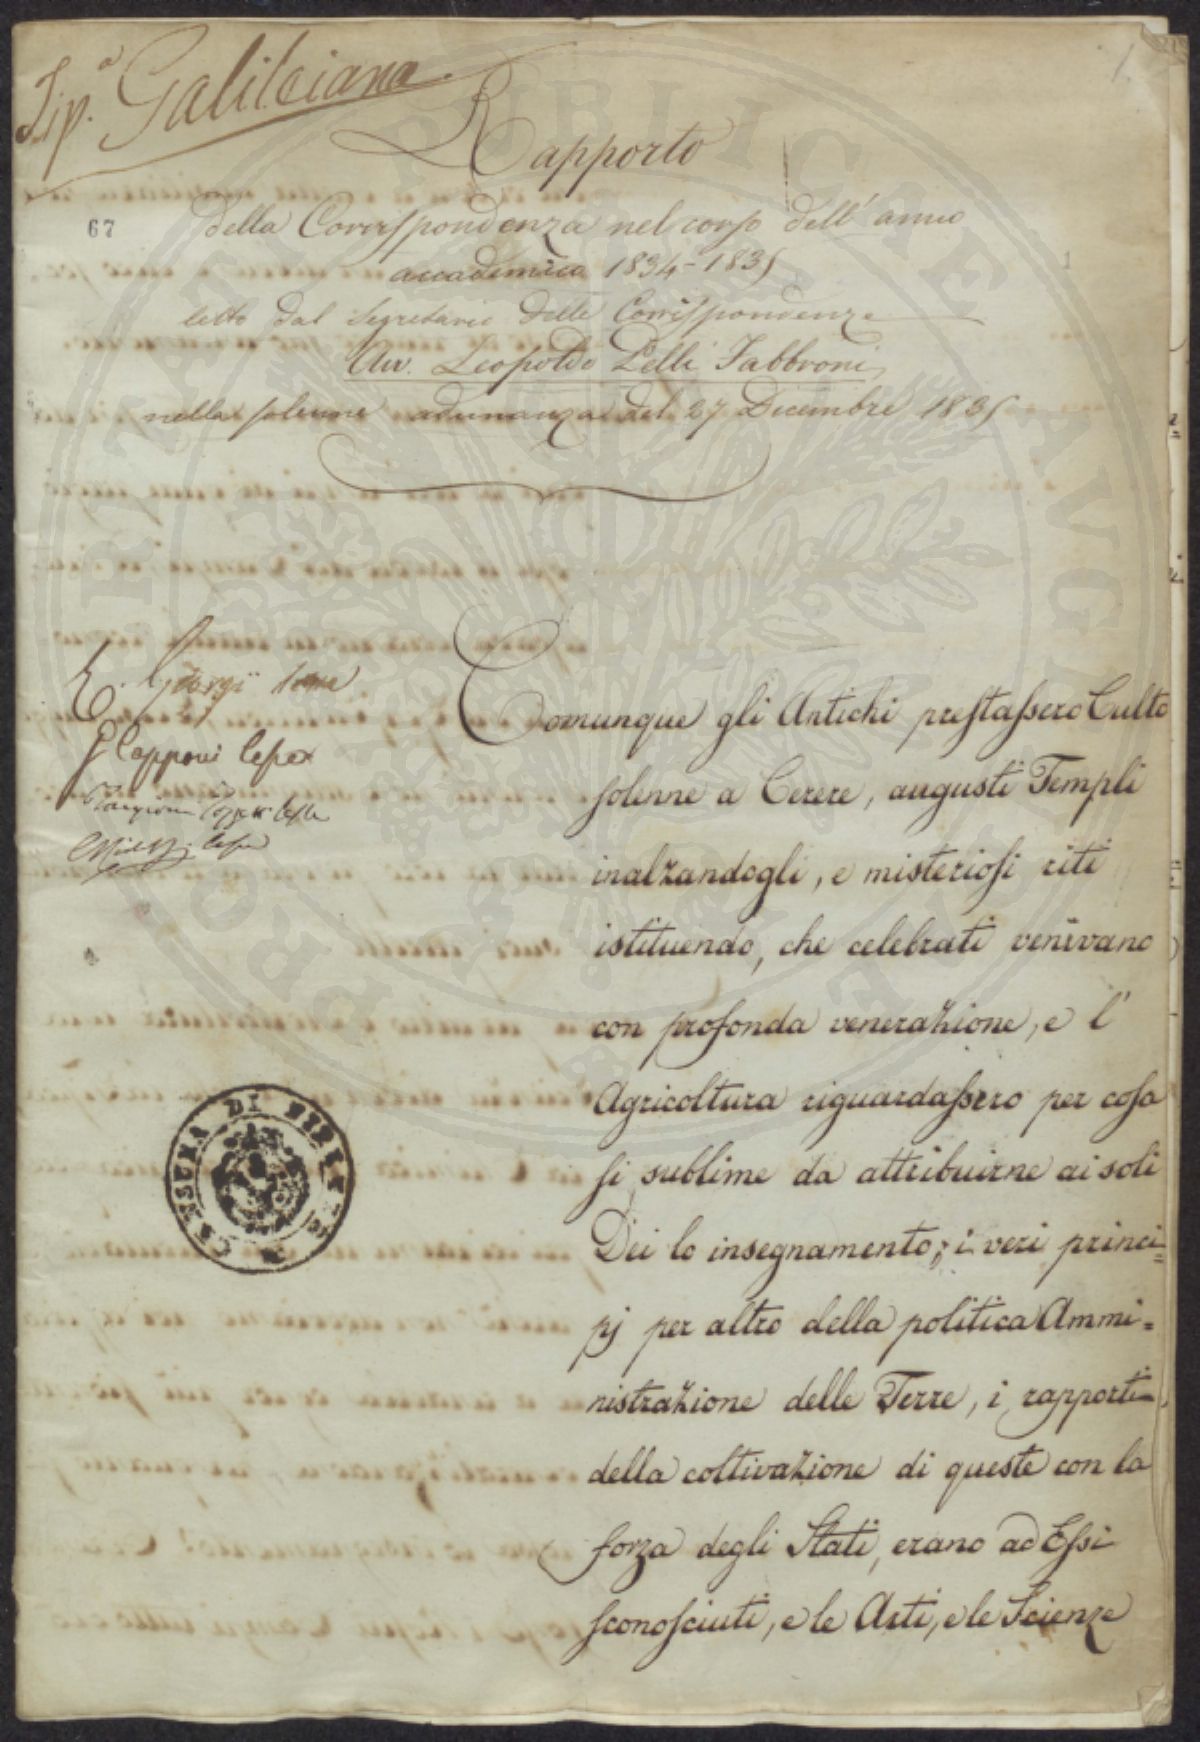 Tip.ª Galileiana
1.
Rapporto
67
della Corrispondenza nel corso dell' anno
accademico 1834-1835
letto dal Segretario delle Corrispondenze
Avv. Leopoldo Pelli Fabbroni
nella solenne adunanza del 27 Dicembre 1835
G Capponi
Comunque gli Antichi prestassero Culto
solenne a Cerere, augusti Templi
inalzandogli, e misteriosi riti
istituendo, che celebrati venivano
con profonda venerazione, e l'
Agricoltura riguardassero per cosa
sì sublime da attribuirne ai soli
Dei lo insegnamento; i veri princi=
pj per altro della politica Ammi=
nistrazione delle Terre, i rapporti
della coltivazione di queste con la
forza degli Stati, erano ad Essi
sconosciuti, e le Arti, e le Scienze
CENSURA DI FIRENZE